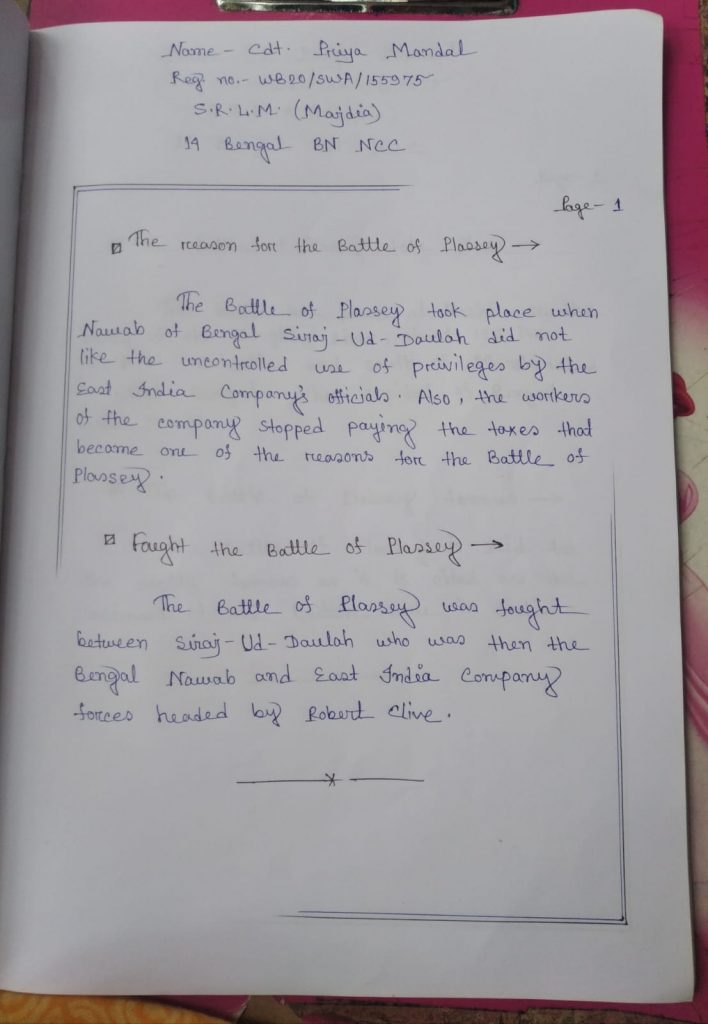 Name - Cdt. Priya Mandal
Reg. no.- WB20/SWA/155975
S.R.L.M. (Majdia)
14 Bengal BN NCC
Page- 1
The reason for the Battle of Plassey →
The Battle of Plassey took place when
Nawab of Bengal Siraj-Ud-Daulah did not
like the uncontrolled use of privileges by the
East India Company's officials. Also, the workers
of the company stopped paying the taxes that
became one of the reasons for the Battle of
Plassey.
Fought the Battle of Plassey →
The Battle of Plassey was fought
between Siraj-Ud-Daulah who was then the
Bengal Nawab and East India Company
forces headed by Robert Clive.